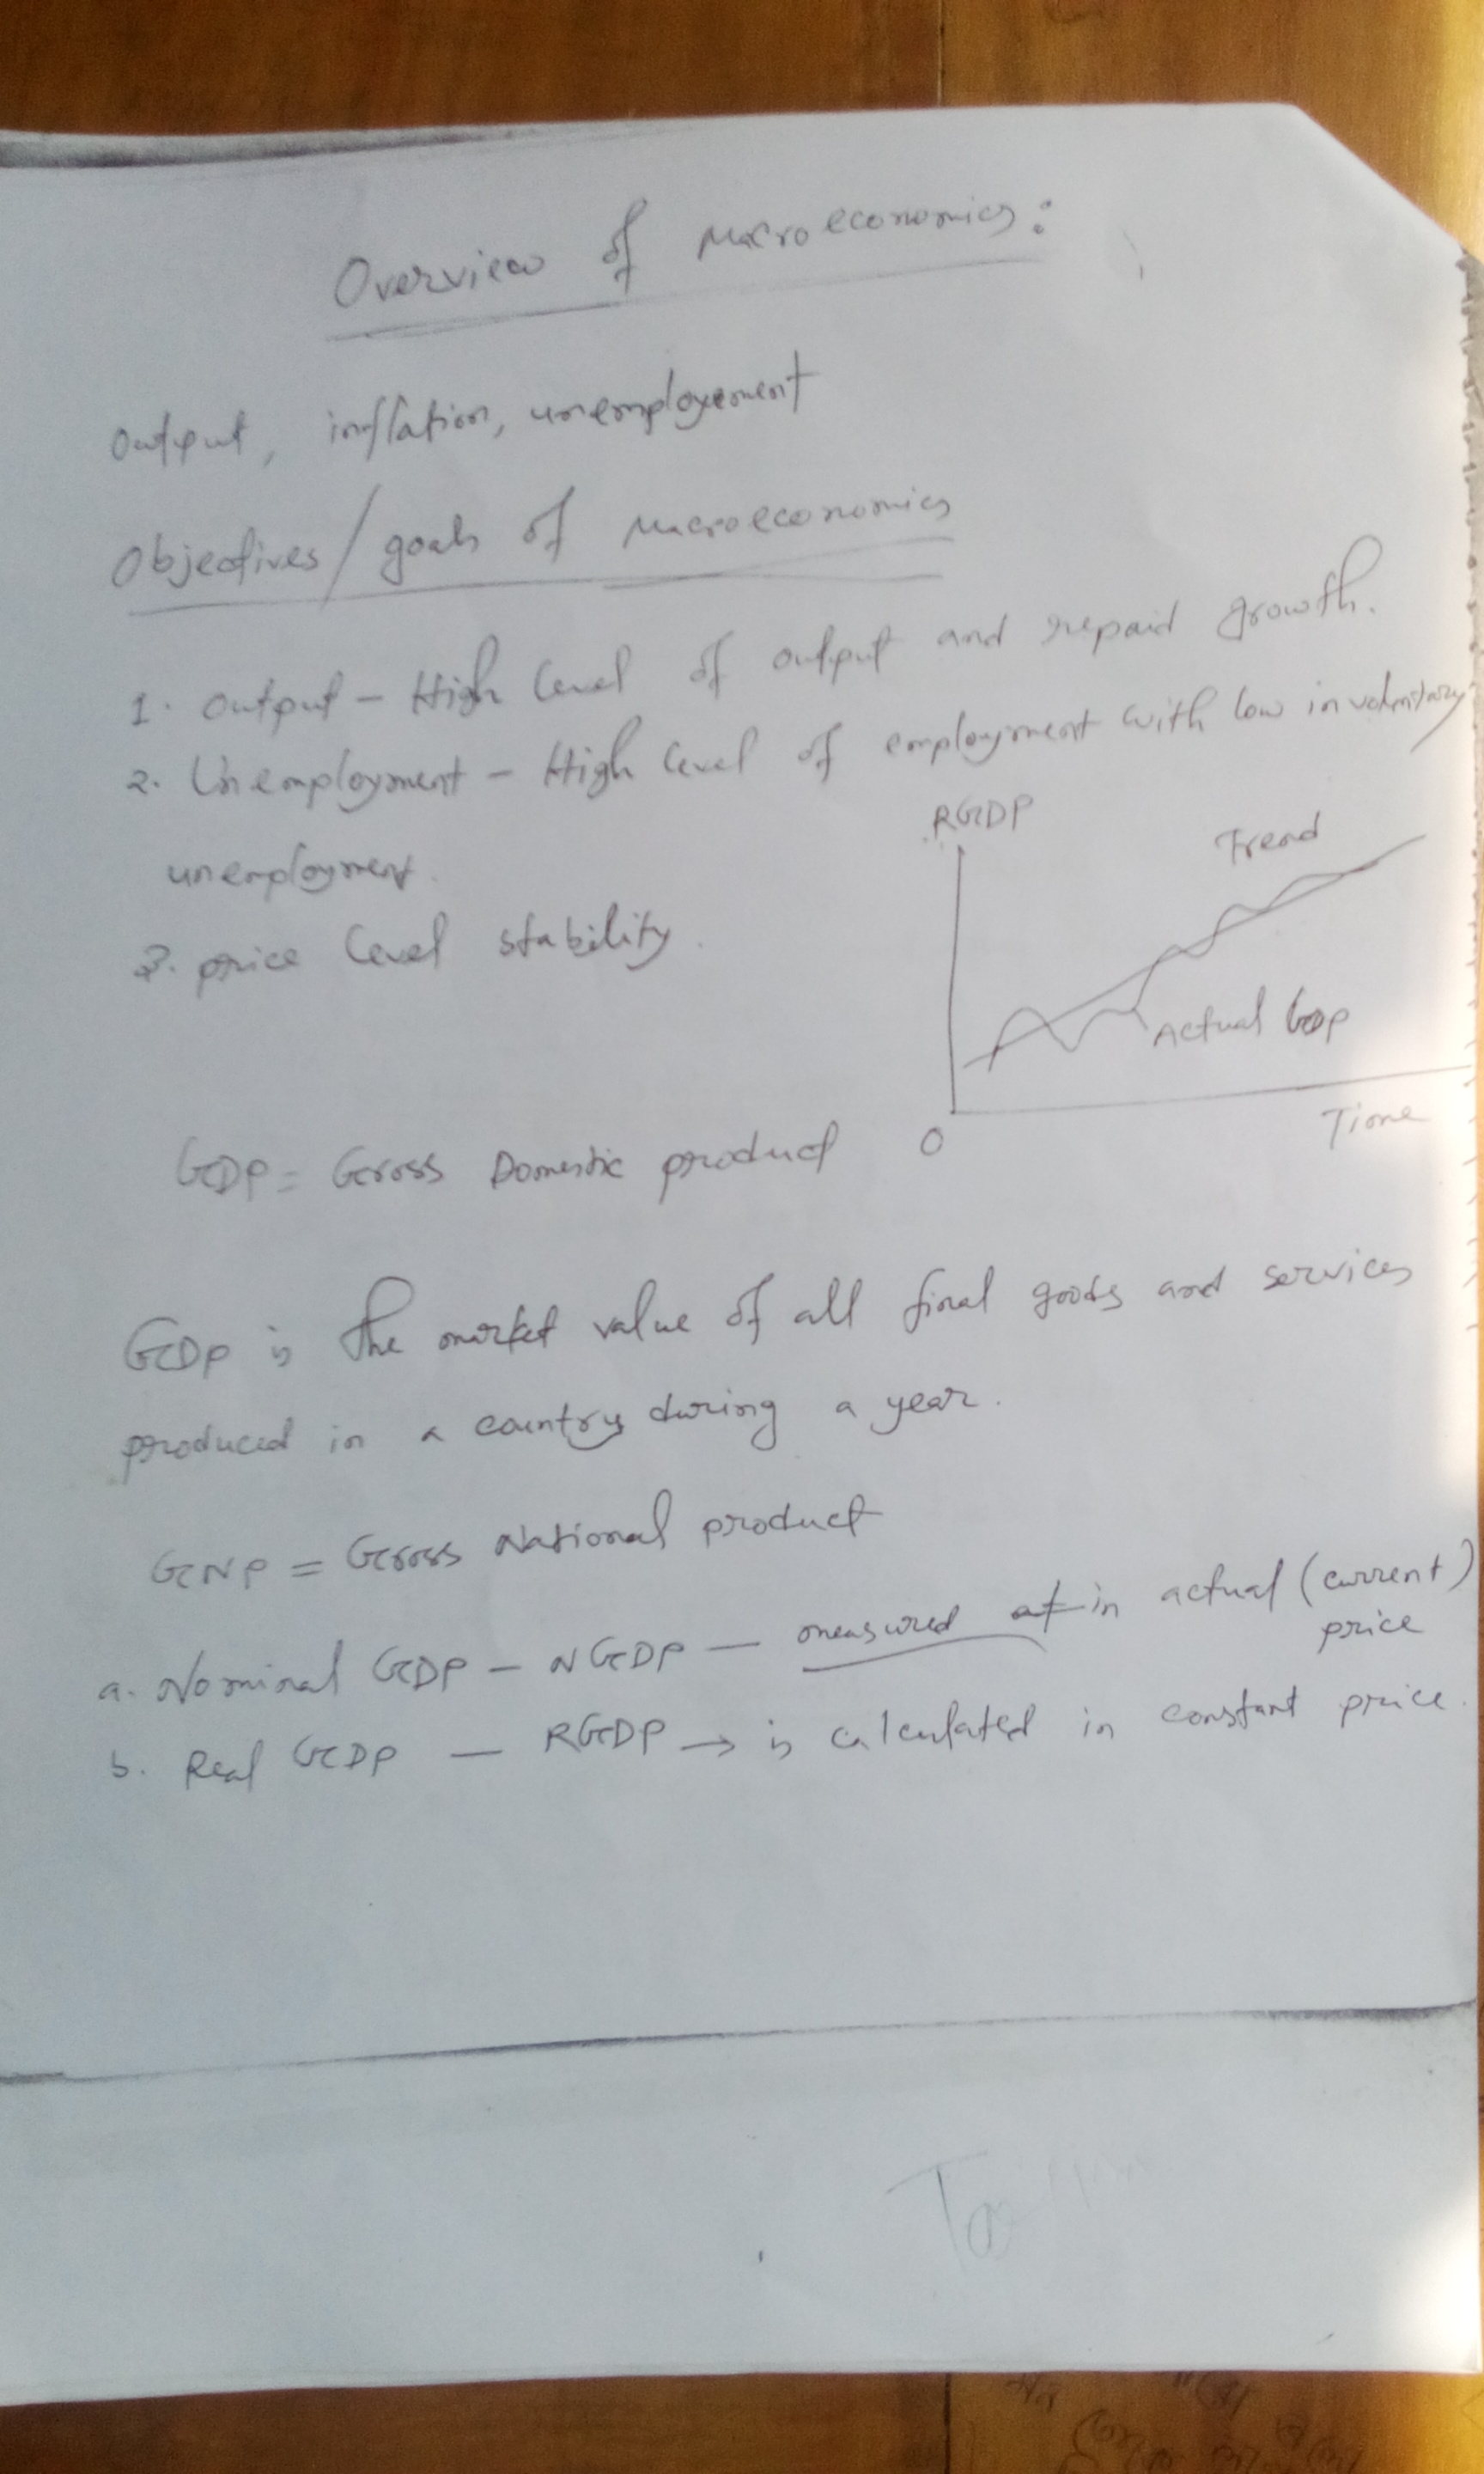 Overview of Macroeconomics:
Output, inflation, unemployement
Objectives/goals of Macroeconomics
1. Output - High level of output and repaid growth.
2. Unemployment - High level of employment with low involuntary
unemployment.
3. price level stability.
RGDP
Trend
Actual GDP
O
Time
GDP = Gross Domestic product
GDP is the market value of all final goods and services
produced in a country during a year.
GNP = Gross National product
a. Nominal GDP - NGDP — measured at in actual (current)
price
b. Real GDP — RGDP → is calculated in constant price.